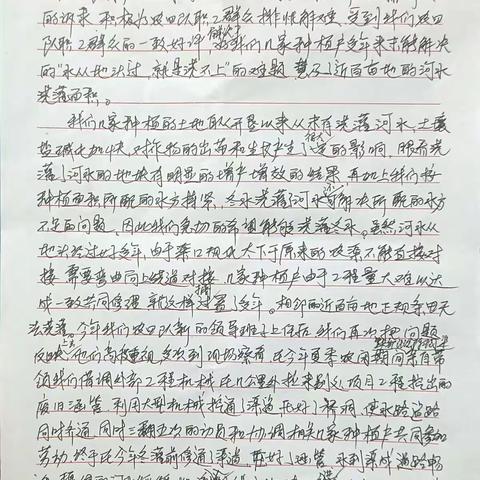 的诉求 积极为双四队职工群众排忧解难，受到我们双四
队职工群众的一致好评，解决了我们几家种植户多年来未能解决
的"水从地头过，就是浇不上"的难题 惠及了近百亩地的河水
浇灌面积。
我们几家种植的土地自从开垦以来从未有浇灌河水，土壤
盐碱化加快，对作物的出苗和生长产生了很大的影响，眼看浇
灌了河水的地块有明显的增产增效的结果，再加上我们按
种植面积所配的水方指标，冬水浇灌了河水还可解决所配的水方
不足的问题，因此我们急切的希望能浇灌冬水。虽然河水从
地头经过好多年，由于渠口视低太下于原来的坡渠不能直接对
接 需要弯曲向上绕道对接 几家种植户由于工程量大难以达
成一致共同修理 就这样搁置了多年。相邻的近百亩地正规条田无
法浇灌，今年我们双四队新的领导班子上任后 我们再次把问题
反映上去 他们高度重视 多次到现场察看 在今年夏季 期间亲自带
领我们借调外部工程机械 在几公里外找来别的项目工程挖出的
废旧涵管，利用大型机械挖通了渠道 压好了桥洞，使水路 道路
同时开通 同时三翻五次的动员和协调相关几家种植户共同参加
劳动，终于在今年冬灌前修通了渠道，取好了涵管 水到渠成 道路畅